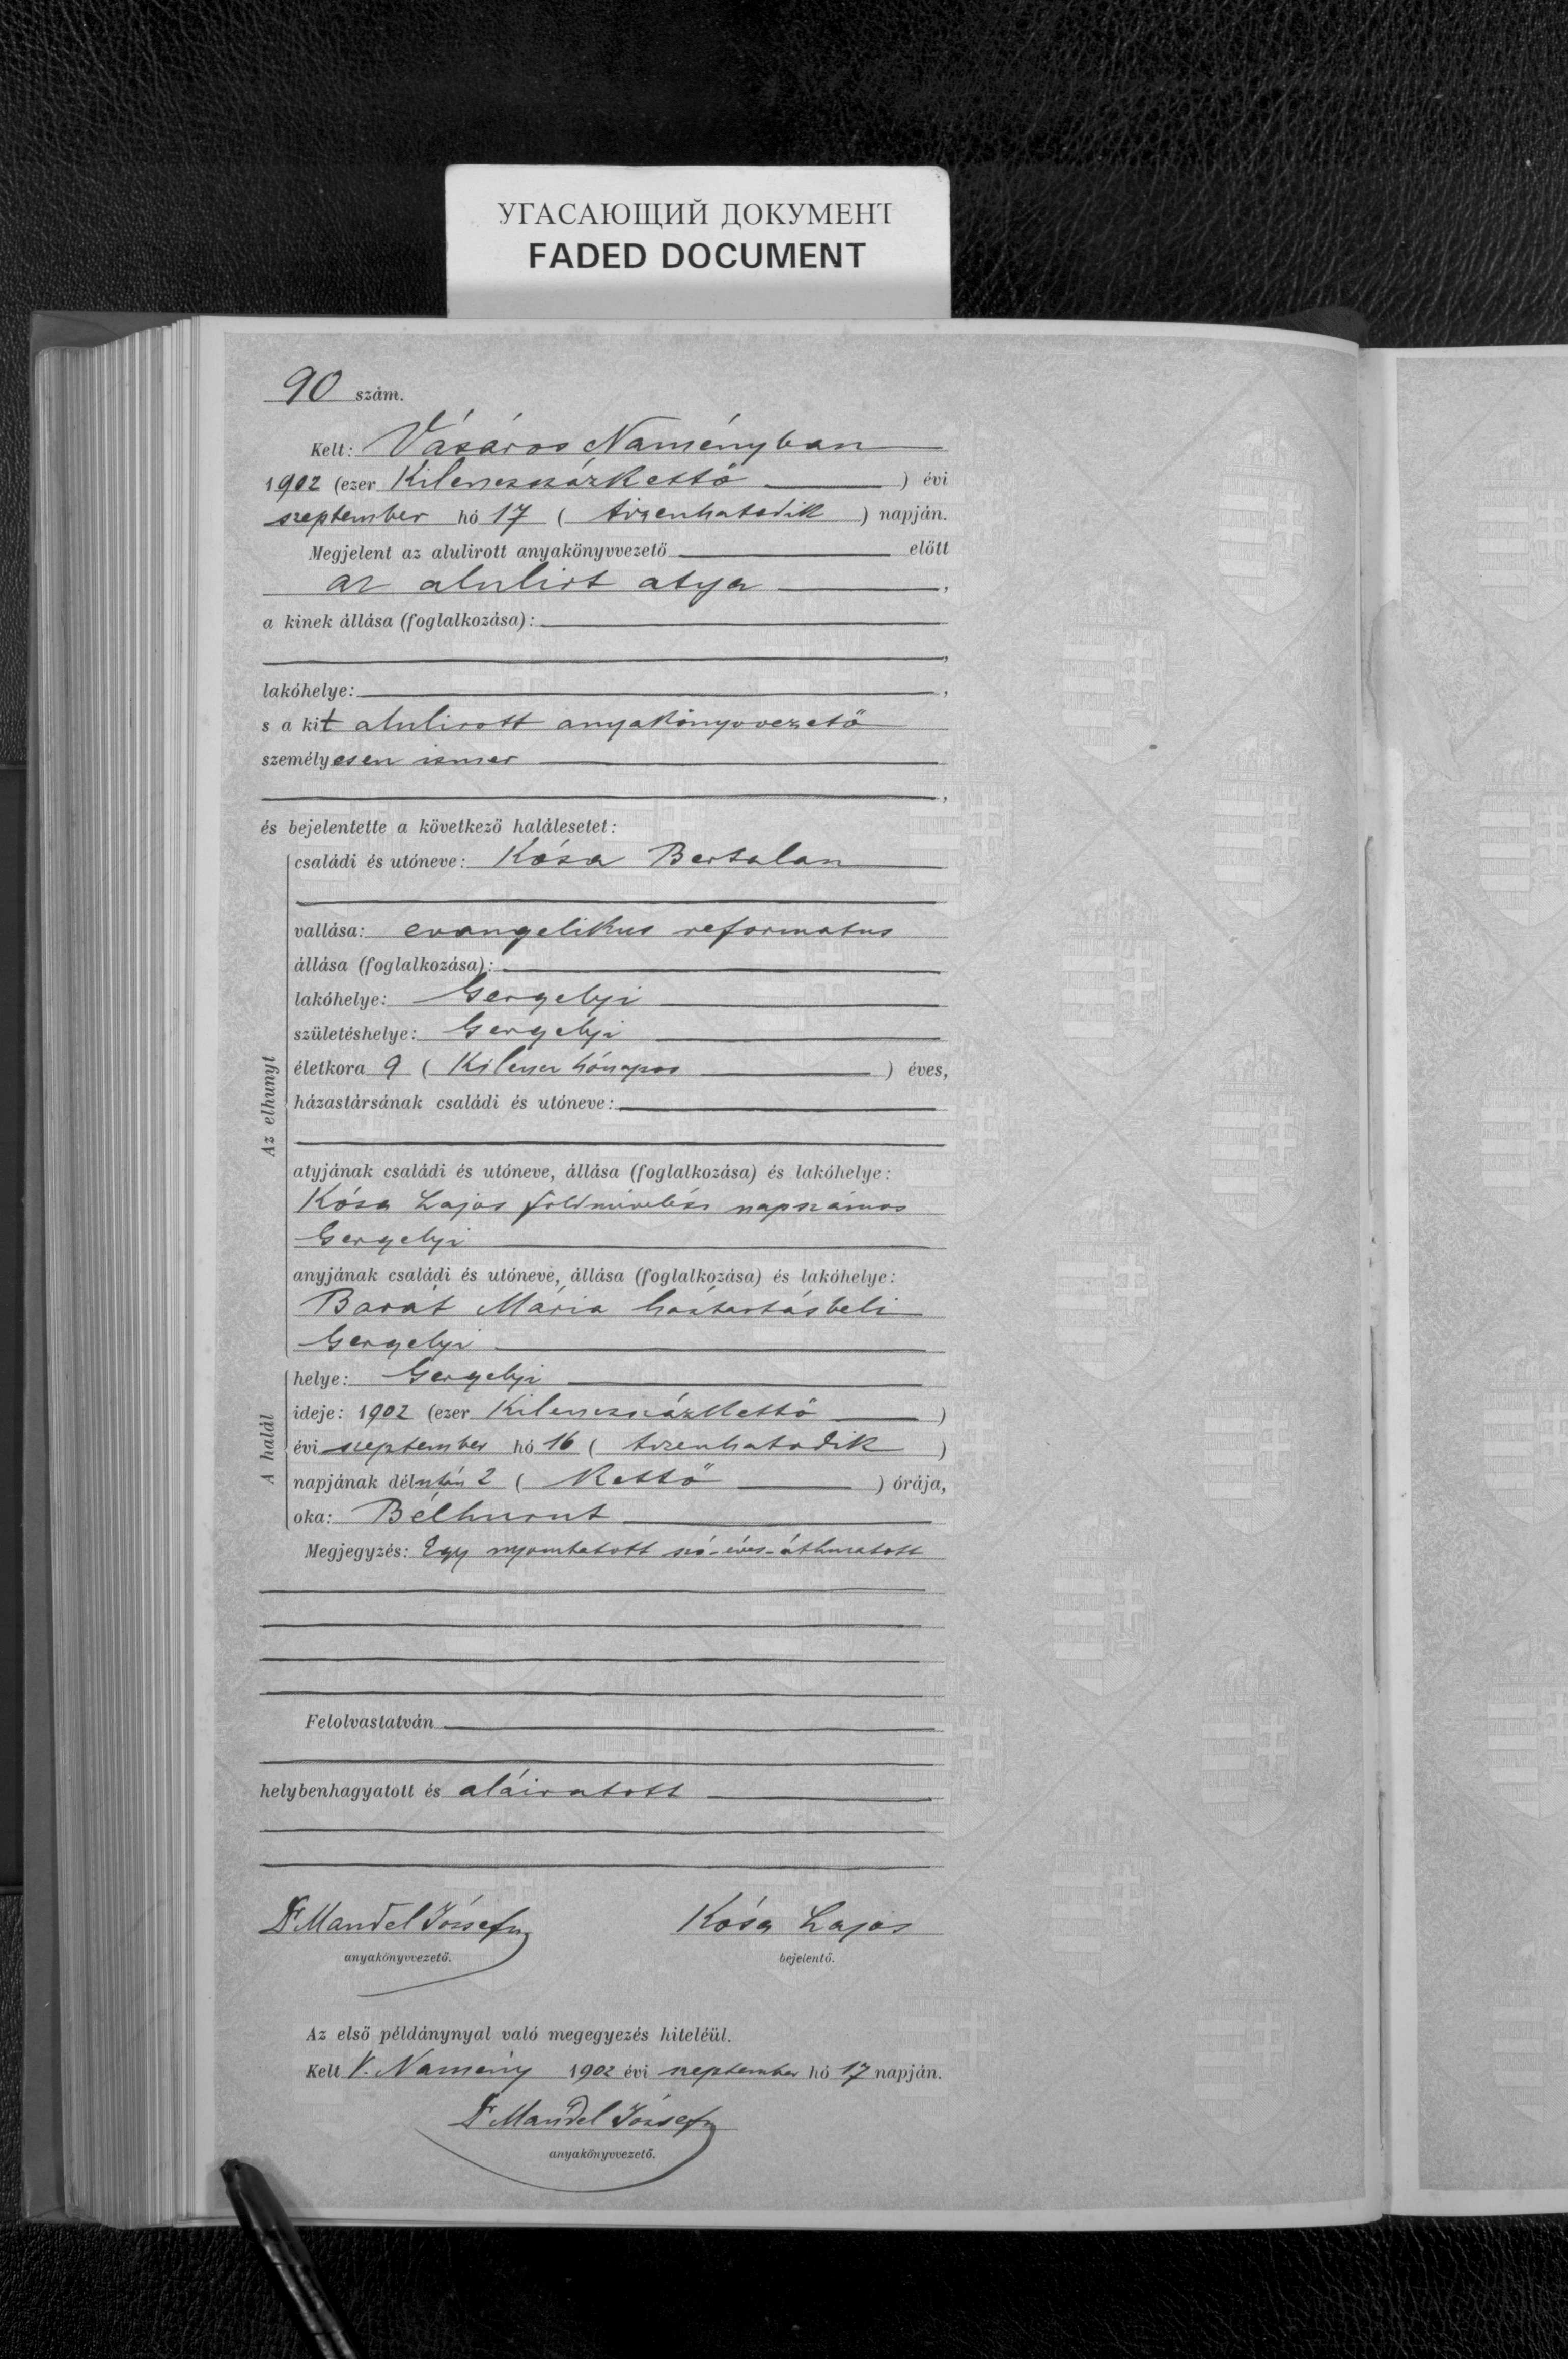 УГАСАЮЩИЙ ДОКУМЕНТ
FADED DOCUMENT
90 szám.
Kelt: Vásáros Naményban
1902 (ezer Kilenczszázkettő ) évi
szeptember hó 17 ( tizenhatodik ) napján.
Megjelent az alulirott anyakönyvvezető előtt
az alulirt atya ,
a kinek állása (foglalkozása):
,
lakóhelye: ,
s a kit alulirott anyakönyvvezető
személyesen ismer
,
és bejelentette a következő halálesetet:
Az elhunyt
családi és utóneve: Kósa Bertalan
vallása: evangelikus reformatus
állása (foglalkozása):
lakóhelye: Gergelyi
születéshelye: Gergelyi
életkora 9 ( Kilencz hónapos ) éves,
házastársának családi és utóneve:
atyjának családi és utóneve, állása (foglalkozása) és lakóhelye:
Kósa Lajos földmivelési napszámos
Gergelyi
anyjának családi és utóneve, állása (foglalkozása) és lakóhelye:
Barát Mária háztartásbeli
Gergelyi
A halál
helye: Gergelyi
ideje: 1902 (ezer Kilenczszázkettő )
évi szeptember hó 16 ( tizenhatodik )
napjának délután 2 ( Kettő ) órája,
oka: Bélhurut
Megjegyzés: Egy nyomtatott szó - éves - áthuzatott
Felolvastatván
helybenhagyatott és aláiratott
Dr Mandel József Kósa Lajos
anyakönyvvezető. bejelentő.
Az első példánynyal való megegyezés hiteléül.
Kelt V. Namény 1902 évi szeptember hó 17 napján.
Dr Mandel József
anyakönyvvezető.